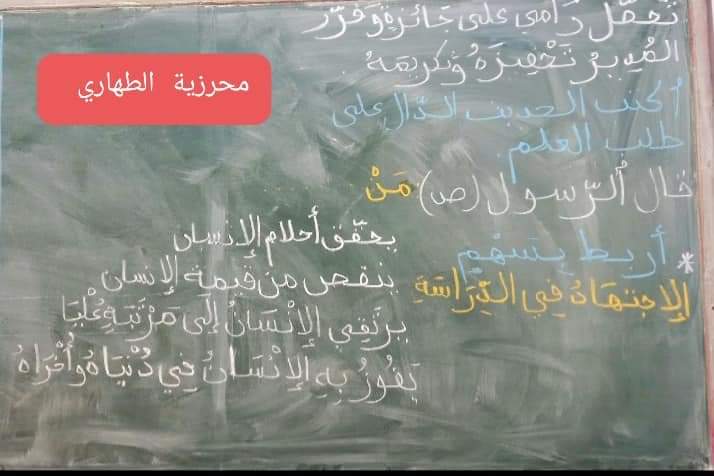 تحصّل رامي على جائزة وقرّر
المدير تحفيزه وتكريمه.
محرزية الطهاري
أكتب الحديث الدّال على
طلب العلم.
قال الرّسول (ص) مَنْ
* أربط بسهم
الاِجتهادُ في الدِّرَاسَةِ
يحقّق أحلام الإنسان
ينقص من قيمة الإنسان
يرتقي الإنْسَانُ إلَى مَرْتَبَةٍ عُلْيَا
يَفُوزُ بِهِ الإنْسَانُ فِي دُنْيَاهُ وَأُخْرَاهُ